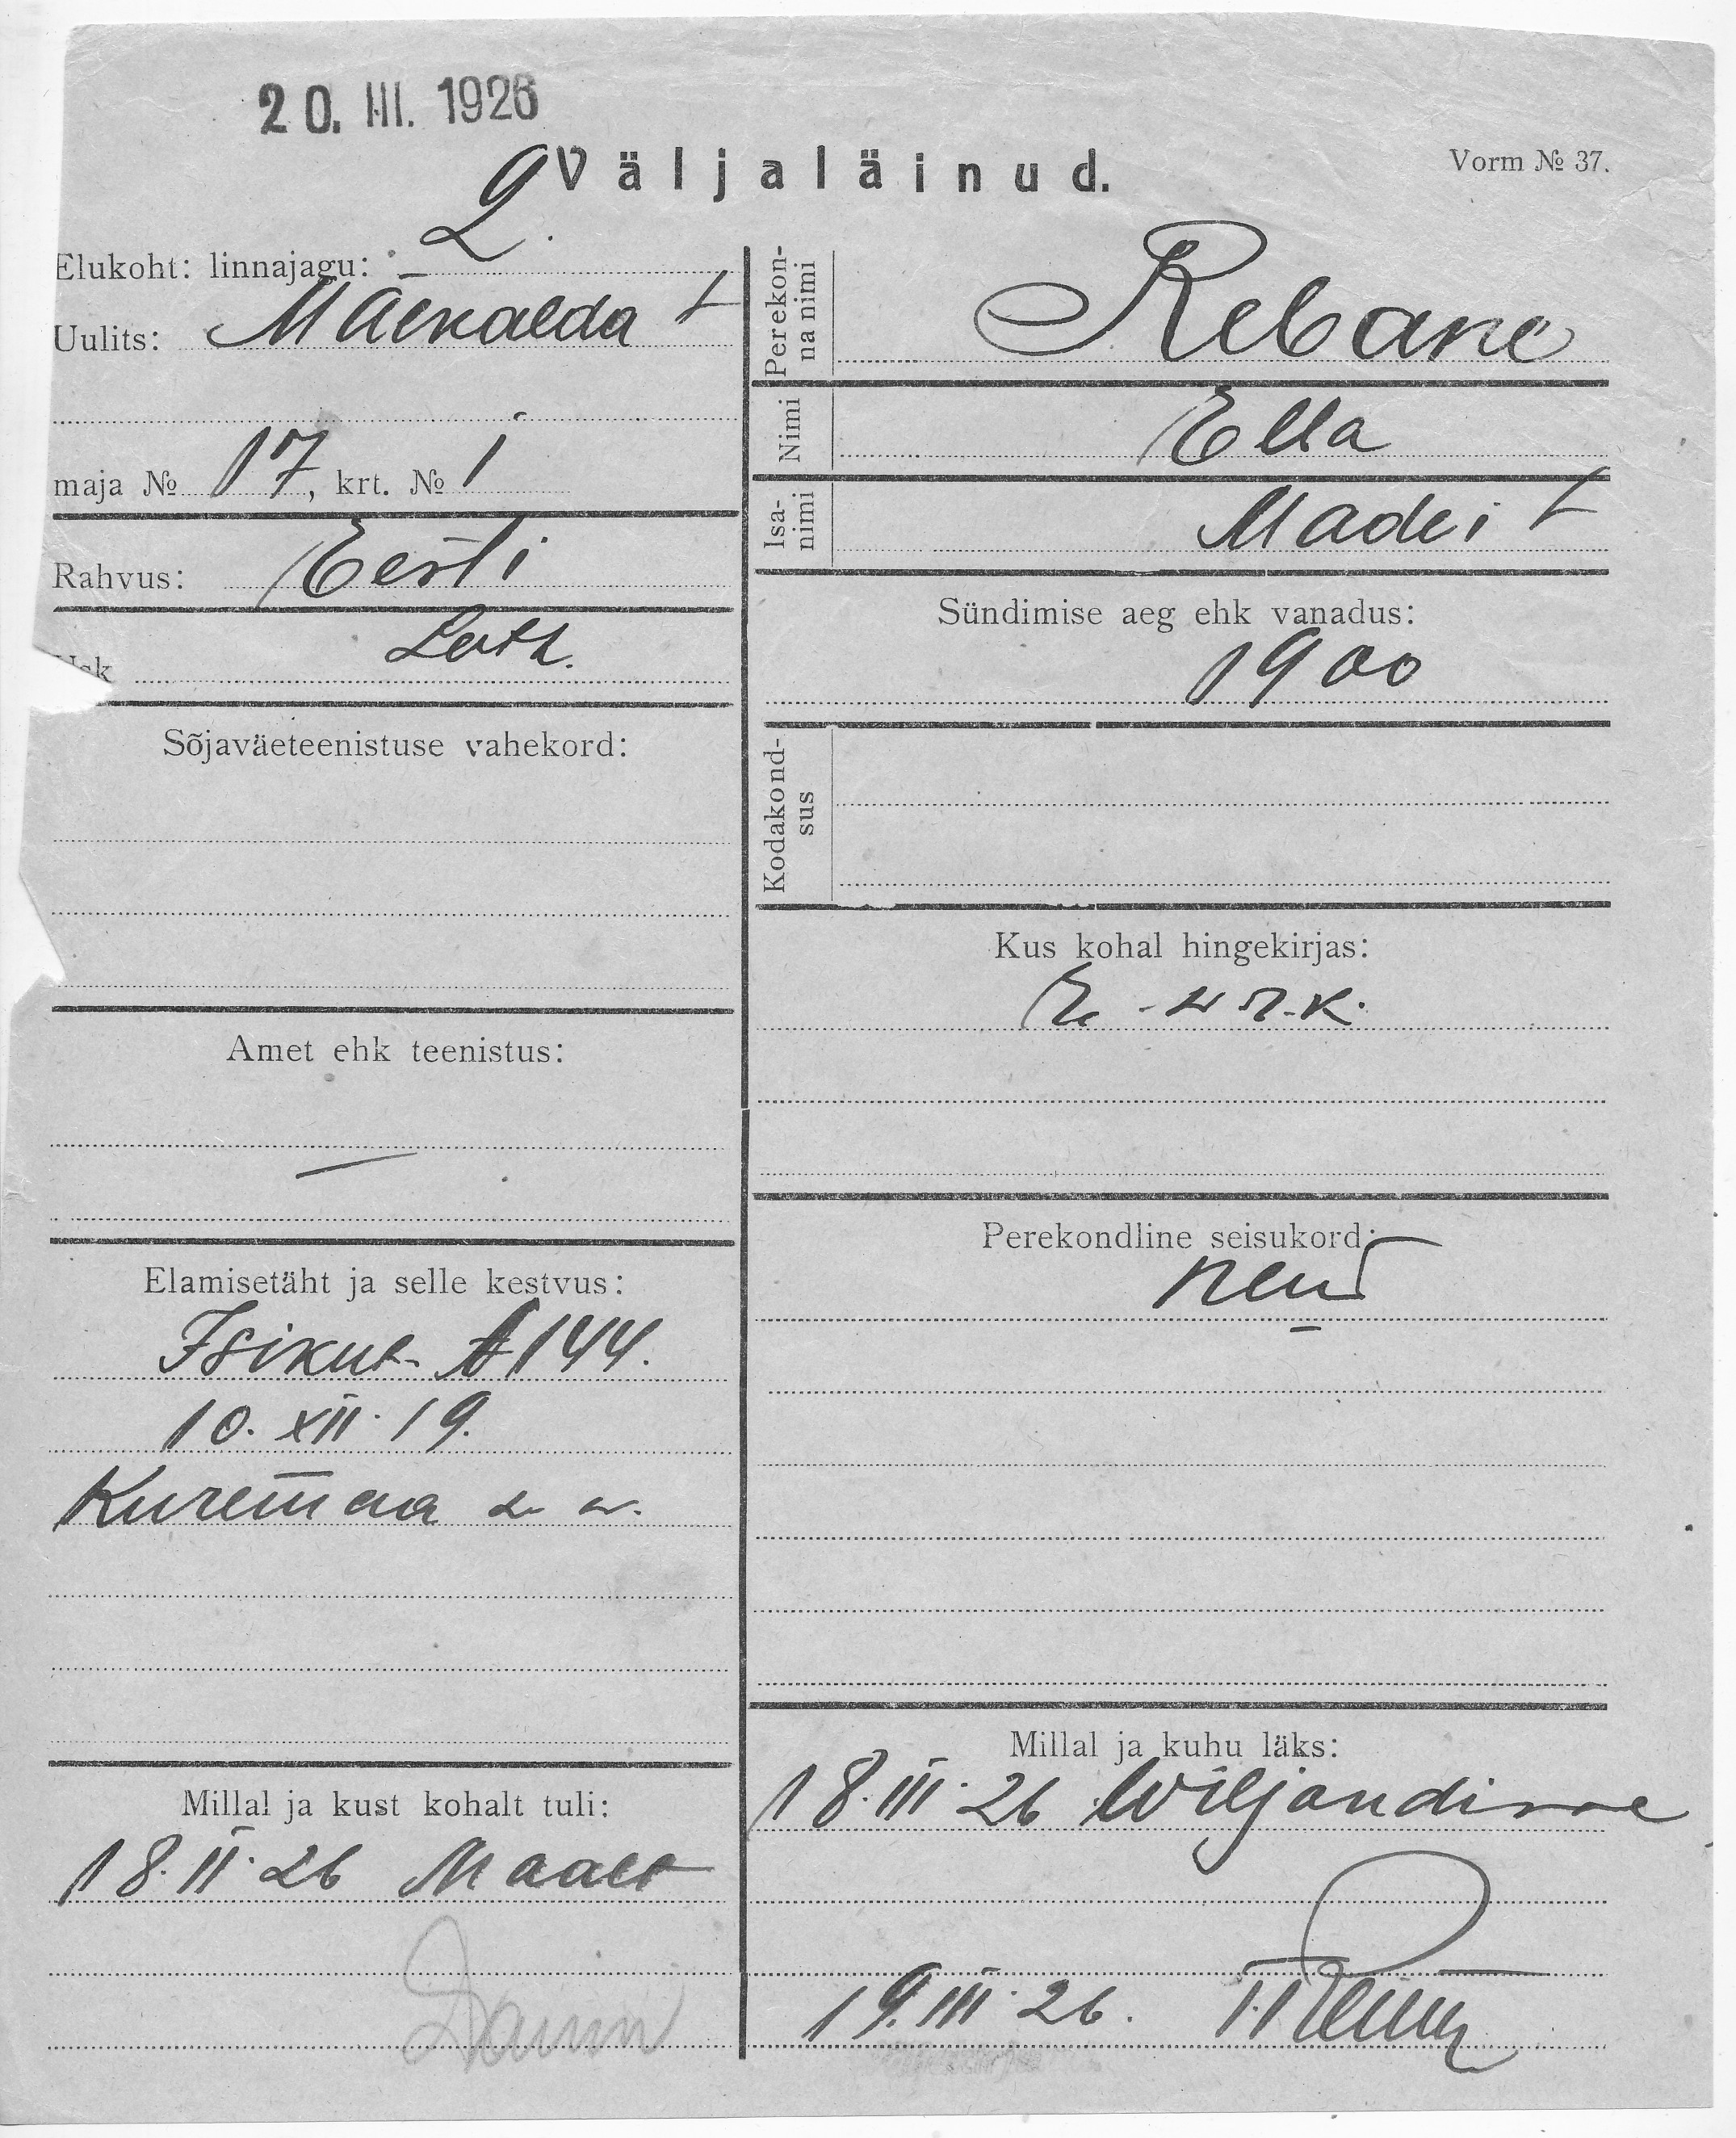 20. III. 1926
Väljaläinud.
Vorm № 37.
2.
Elukoht: linnajagu:
Uulits: Mäekalda t
maja № 17, krt. № 1
Rahvus: Eesti
Usk Luth.
Sõjaväeteenistuse vahekord:
Amet ehk teenistus:
—
Elamisetäht ja selle kestvus:
Isikut. A 144.
10. XII. 19.
Kuremaa v. v.
Millal ja kust kohalt tuli:
18. II. 26 Maalt
Perekonna nimi Rebane
Nimi Ella
Isanimi Madi t
Sündimise aeg ehk vanadus:
1900
Kodakondsus
Kus kohal hingekirjas:
Perekondline seisukord:
neid
Millal ja kuhu läks:
18. III. 26 Wiljandisse
19. III. 26.